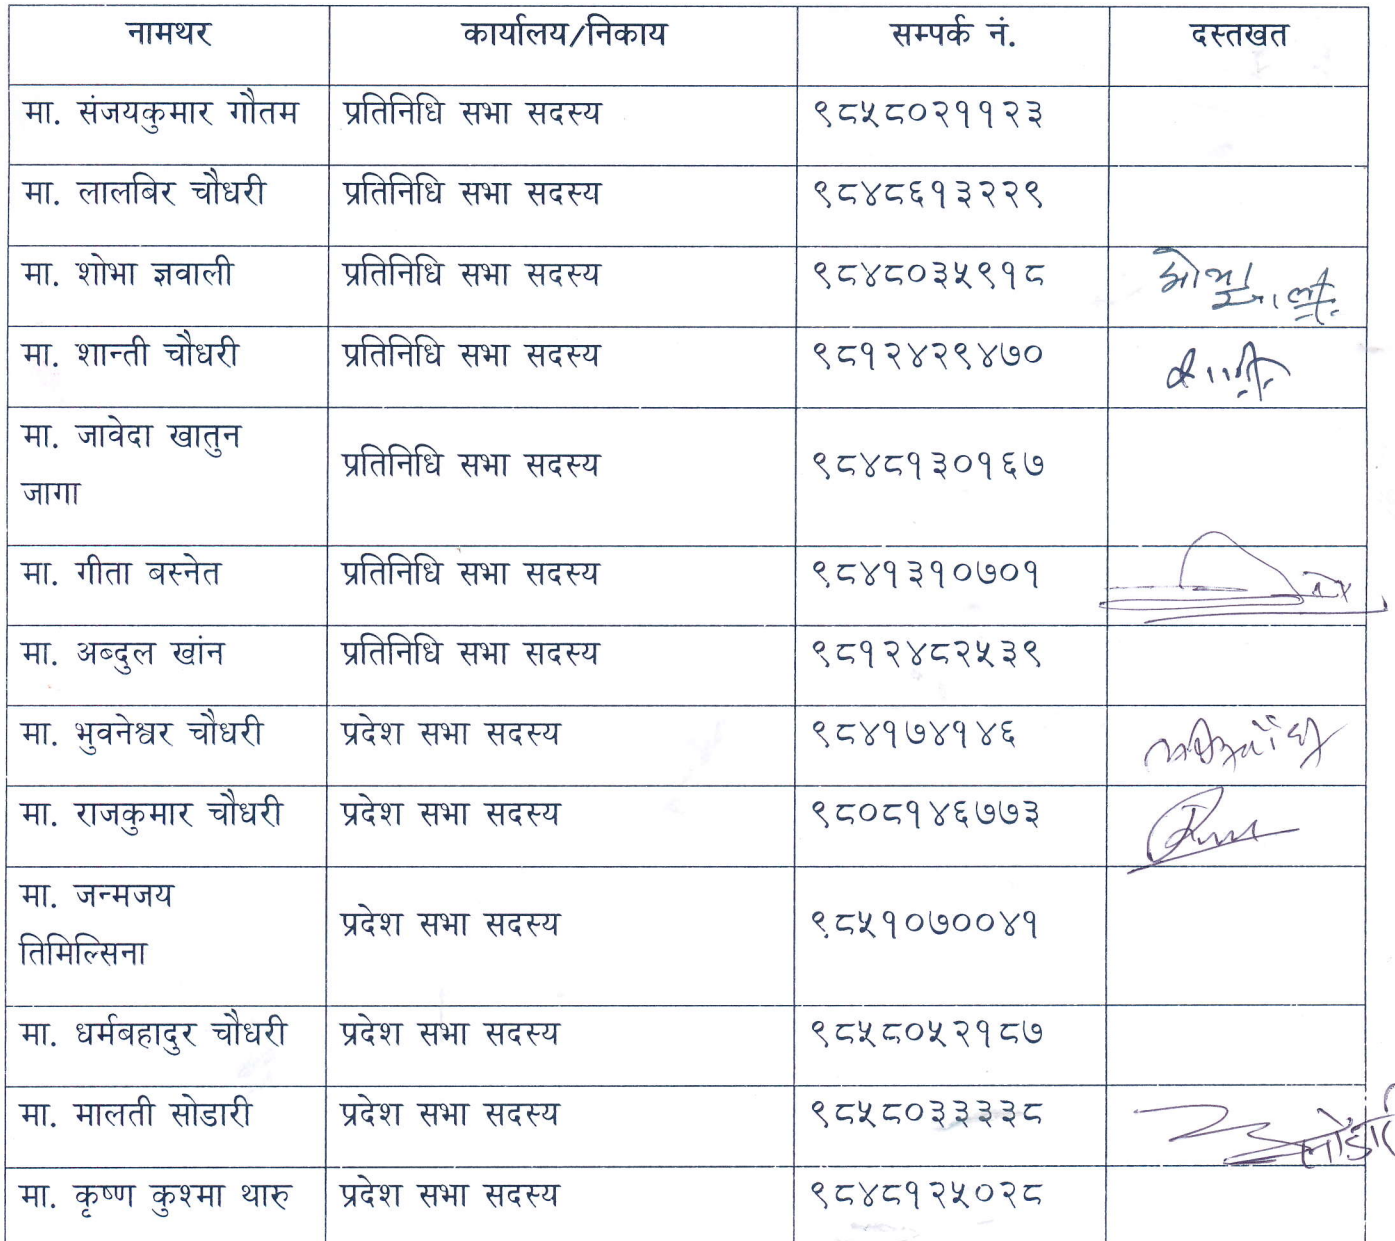 नामथर कार्यालय/निकाय सम्पर्क नं. दस्तखत
मा. संजयकुमार गौतम प्रतिनिधि सभा सदस्य ९८५८०२११२३
मा. लालबिर चौधरी प्रतिनिधि सभा सदस्य ९८४८६१३२२९
मा. शोभा ज्ञवाली प्रतिनिधि सभा सदस्य ९८४८०३५९१८
मा. शान्ती चौधरी प्रतिनिधि सभा सदस्य ९८१२४२९४७०
मा. जावेदा खातुन
जागा
प्रतिनिधि सभा सदस्य ९८४८१३०१६७
मा. गीता बस्नेत प्रतिनिधि सभा सदस्य ९८४१३१०७०१
मा. अब्दुल खांन प्रतिनिधि सभा सदस्य ९८१२४८२५३९
मा. भुवनेश्वर चौधरी प्रदेश सभा सदस्य ९८४१७४१४६
मा. राजकुमार चौधरी प्रदेश सभा सदस्य ९८०८१४६७७३
मा. जन्मजय
तिमिल्सिना
प्रदेश सभा सदस्य ९८५१०७००४१
मा. धर्मबहादुर चौधरी प्रदेश सभा सदस्य ९८५८०५२१८७
मा. मालती सोडारी प्रदेश सभा सदस्य ९८५८०३३३३८
मा. कृष्ण कुश्मा थारु प्रदेश सभा सदस्य ९८४८१२५०२८